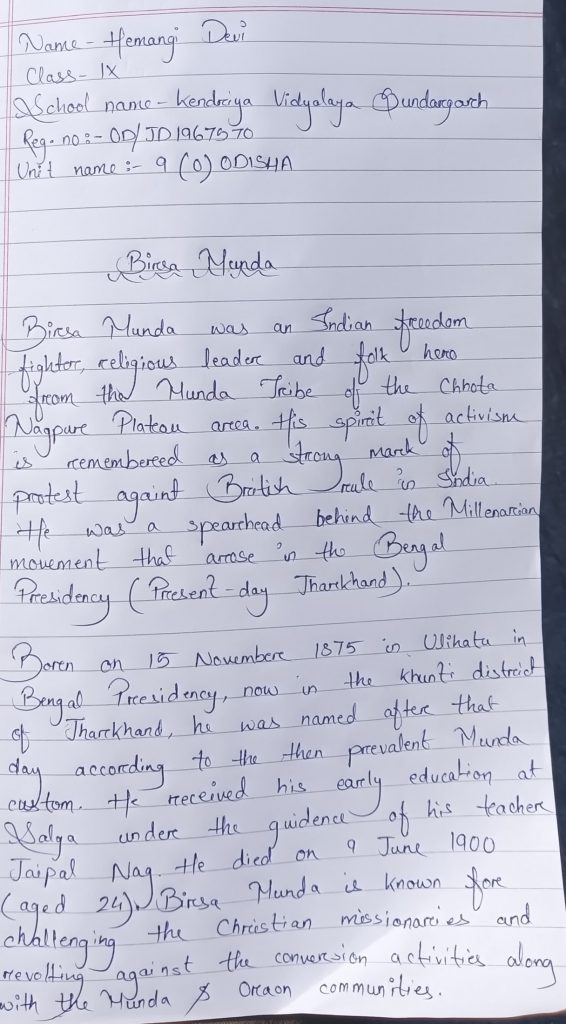 Name - Hemangi Devi
Class - IX
School name - Kendriya Vidyalaya Sundargarh
Reg. no :- OD/JD1967570
Unit name :- 9 (O) ODISHA
Birsa Munda
Birsa Munda was an Indian freedom
fighter, religious leader and folk hero
from the Munda Tribe of the Chhota
Nagpure Plateau area. His spirit of activism
is remembereed as a strong mark of
protest againt British rule in India.
He was a spearhead behind the Millenarian
movement that arose in the Bengal
Presidency (Present-day Jharkhand).
Boren on 15 November 1875 in Ulihatu in
Bengal Presidency, now in the Khunti district
of Jharkhand, he was named after that
day according to the then prevalent Munda
custom. He received his early education at
Salga under the guidence of his teacher
Jaipal Nag. He died on 9 June 1900
(aged 24). Birsa Munda is known fore
challenging the Christian missionaries and
revolting against the conversion activities along
with the Munda & Oraon communities.